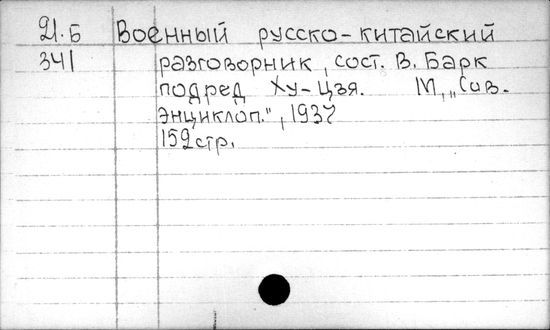 21.Б Военный русско-китайский
341 разговорник, сост. В. Барк
под ред Ху-Цзя. М, „Сов.
энциклоп.", 1937
152 стр.